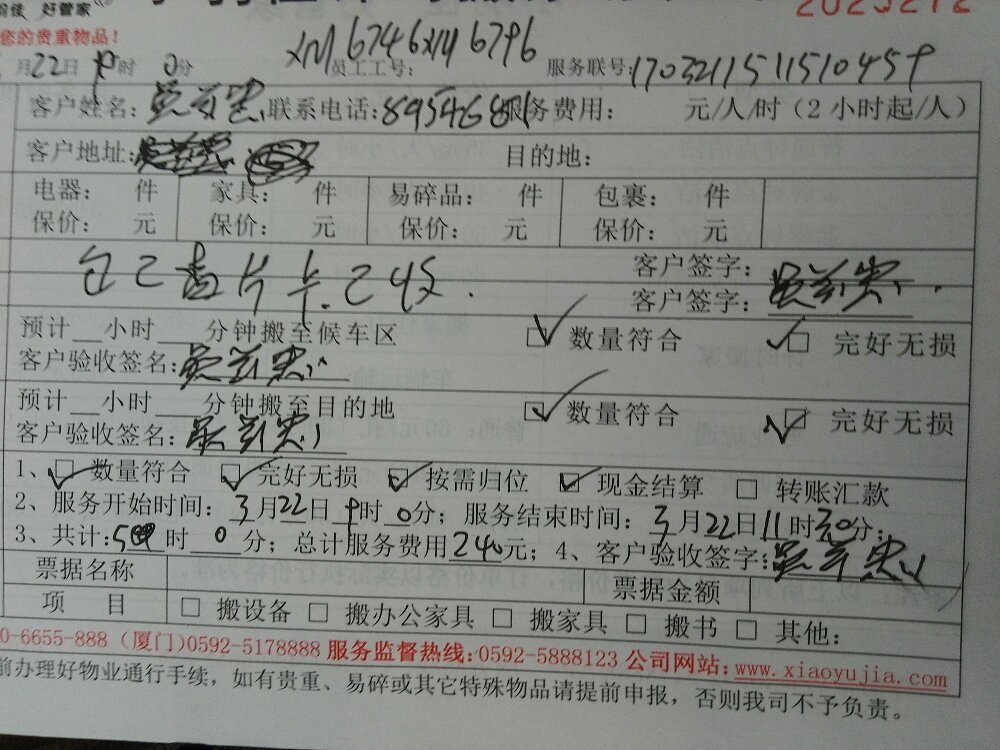 好管家
您的贵重物品!
月22日 9时 0分 XM6746 XM6796 员工工号: 服务联号:170321151151045 9
客户姓名: 联系电话: 服务费用: 元/人/时(2小时起/人)
客户地址: 目的地:
电器: 件 家具: 件 易碎品: 件 包裹: 件
保价: 元 保价: 元 保价: 元 保价: 元
已收.
客户签字:
客户签字:
预计__小时____分钟搬至候车区 数量符合 完好无损
客户验收签名:
预计__小时____分钟搬至目的地 数量符合 完好无损
客户验收签名:
1、 数量符合 完好无损 按需归位 现金结算 □ 转账汇款
2、服务开始时间:3月22日9时0分; 服务结束时间:3月22日11时30分;
3、共计: 时 0 分; 总计服务费用240元; 4、客户验收签字:
票据名称 票据金额
项 目 □ 搬设备 □ 搬办公家具 □ 搬家具 □ 搬书 □ 其他:
0-6655-888 (厦门)0592-5178888 服务监督热线:0592-5888123 公司网站:www.xiaoyujia.com
前办理好物业通行手续,如有贵重、易碎或其它特殊物品请提前申报,否则我司不予负责。